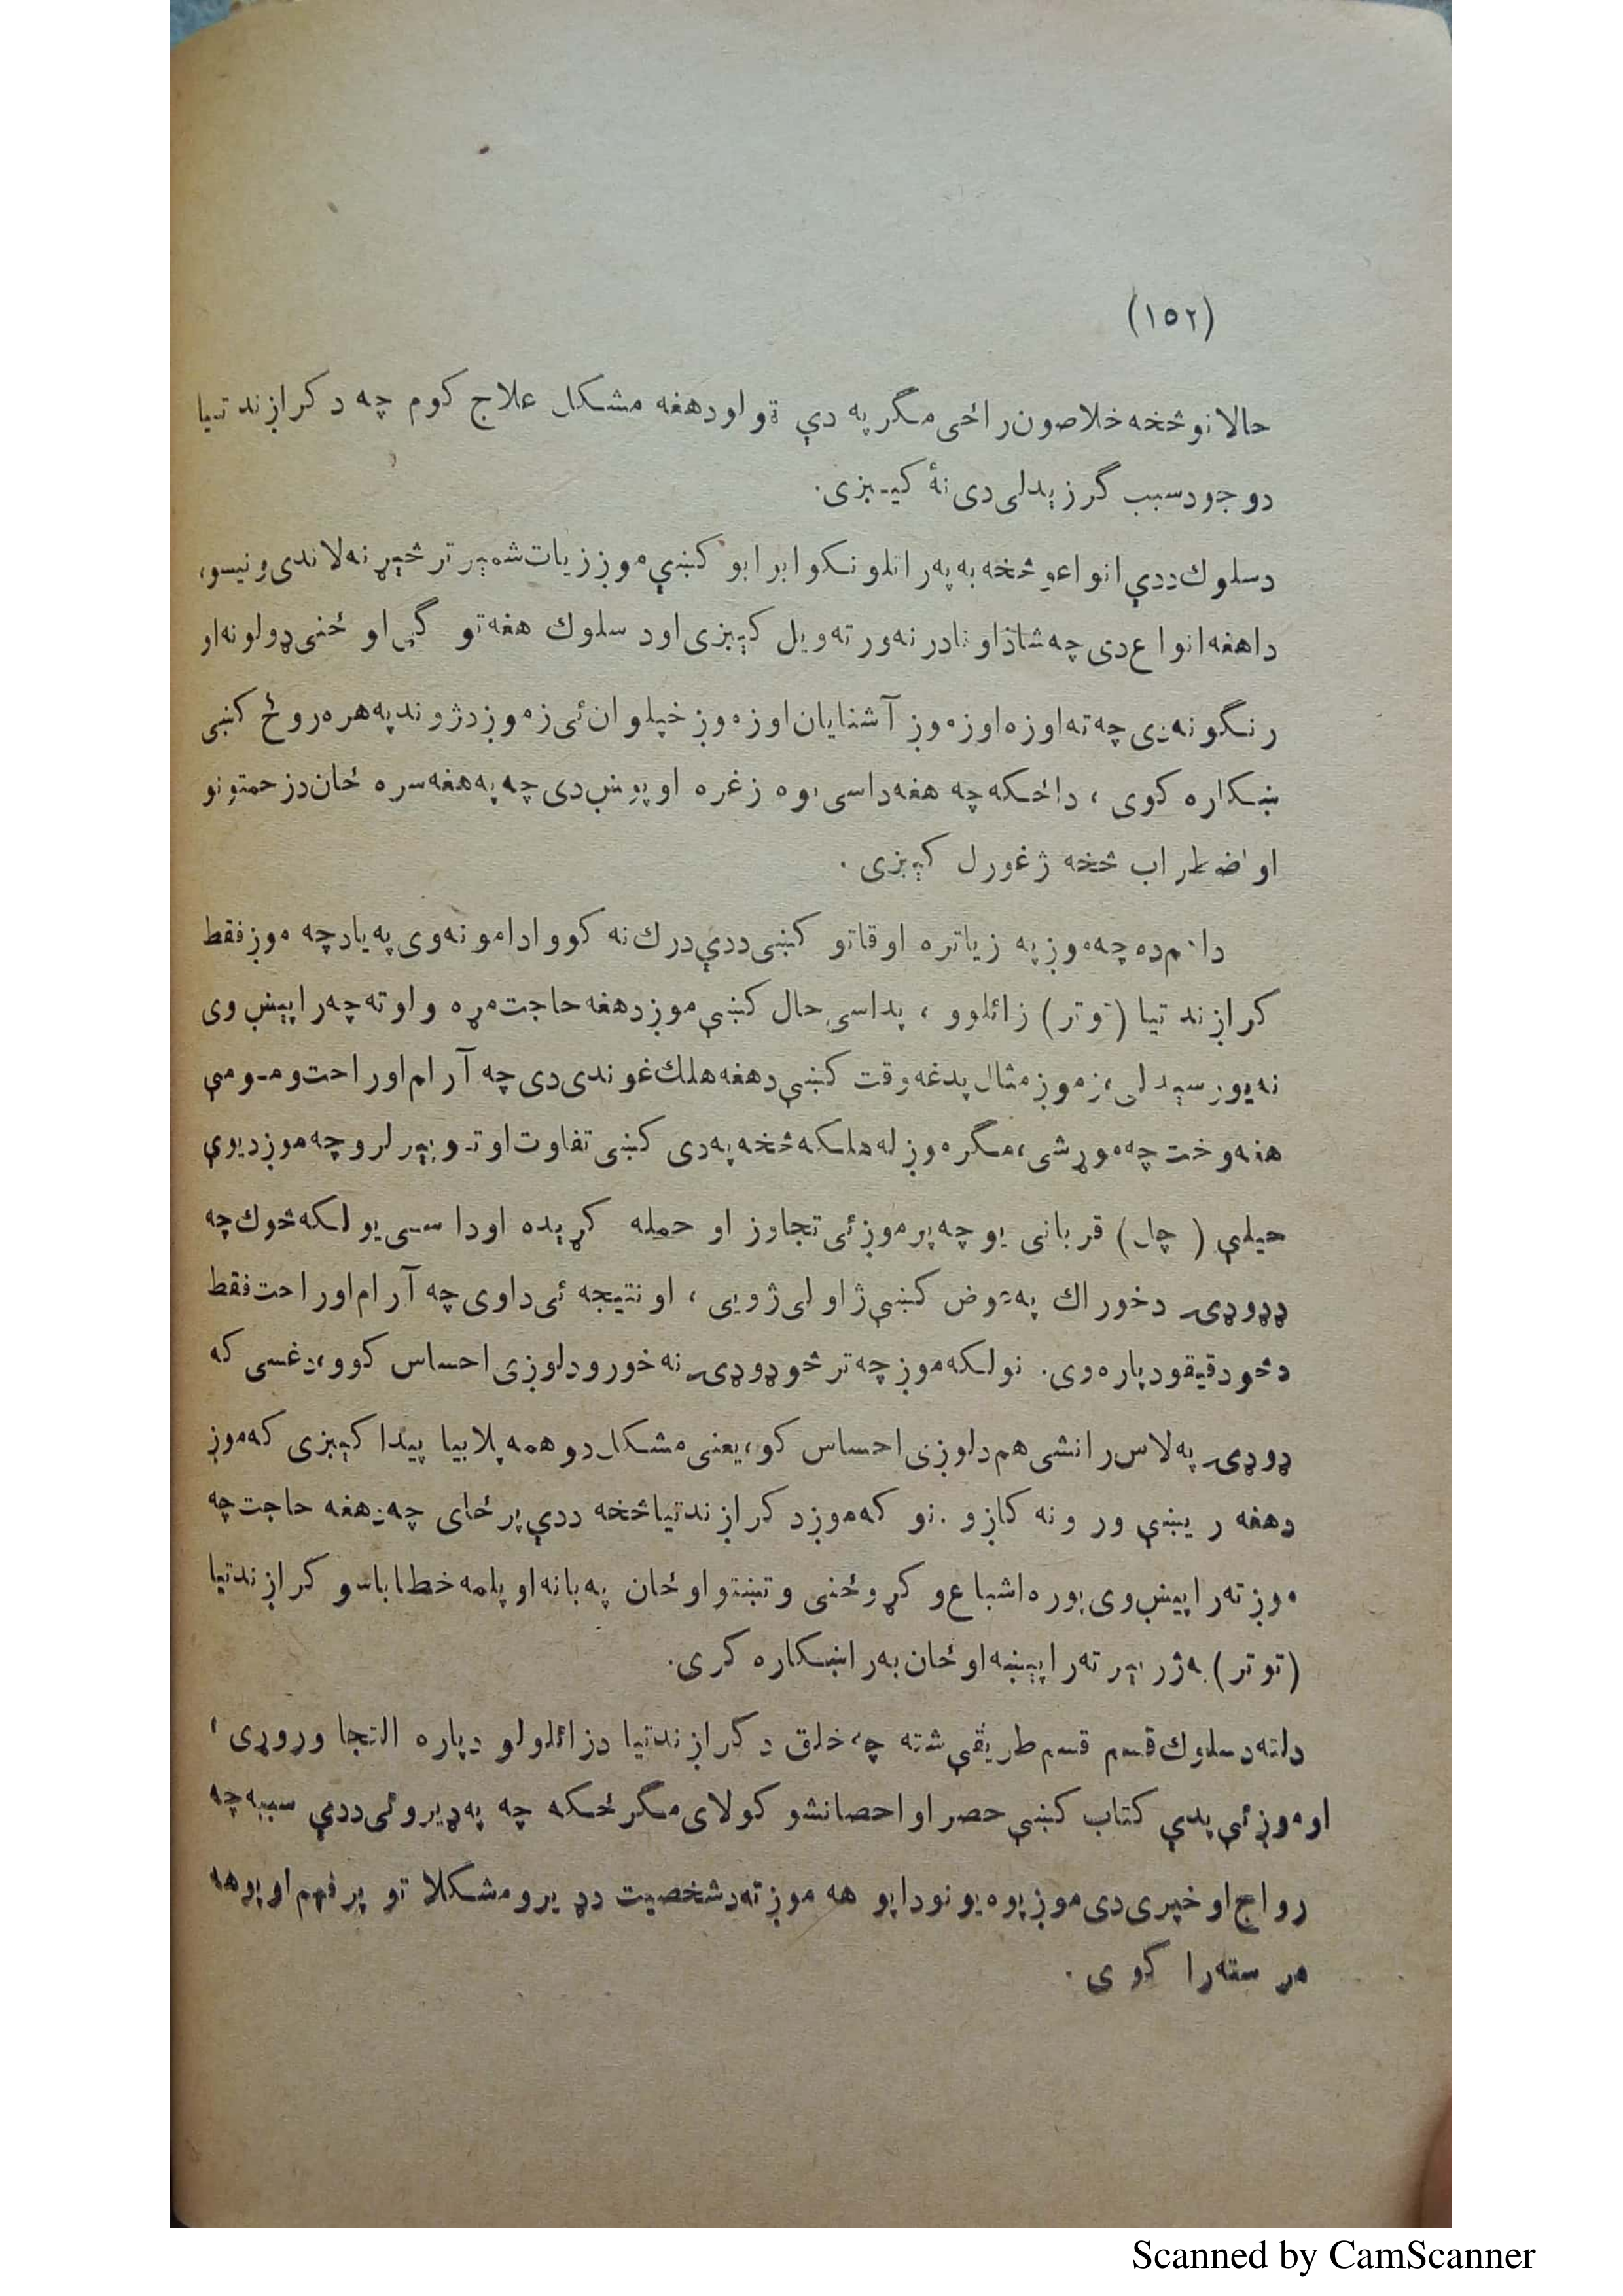 (۱۵۲)
حالاتو څخه خلاصون راځی مگر په دې ټولو د هغه مشکل علاج کوم چه د کړاږند تیا
د وجود سبب گرزېدلی دی نهٔ کیـږی.
د سلوك ددې انواعو څخه به په راتلونکو ابرابو کښې موږ زیات شمېر تر څېړنه لاندی ونیسو،
دا هغه انواع دی چه شاذ او نادر نه ورته ویل کېږی او د سلوك هغه تو گی او ځنی ډولونه او
رنگونه دی چه ته او زه او زموږ آشنایان او زموږ خپلوان ئی زموږ د ژوند په هره روځ کښی
ښکاره کوی ، دا ځکه چه هغه داسی یوه زغره او پوښ دی چه په هغه سره ځان د زحمتونو
او اضطراب څخه ژغورل کېږی .
دا مه ده چه موږ په زیاتره اوقاتو کښی ددې درك نه کوو او دا مو نه وی په یاد چه موږ فقط
کړاږند تیا (توتر) زائلوو ، پداسی حال کښې موږ د هغه حاجت مړه و او ته چه را پېښ وی
نه یو رسېدلی، زموږ مثال پدغه وقت کښې د هغه هلك غوندی دی چه آرام او راحت ومـومې
هغه وخت چه موړ شی، مگر موږ له هلکه څخه په دی کښی تفاوت او تـوپېر لرو چه موږ د یوې
حیلې ( چل ) قربانی یو چه پر موږ ئی تجاوز او حمله کړېده او داسی یو لکه څوك چه
ډډوډۍ د خوراك په عوض کښې ژاولی ژویی ، او نتیجه ئی دا وی چه آرام او راحت فقط
د څو دقیقو دپاره وی. نو لکه موږ چه تر څو ډوډۍ نه خورو د لوږی احساس کوو، دغسی که
ډوډۍ په لاس را نشی هم د لوږی احساس کو، یعنی مشکل دوهمه پلا بیا پیدا کېږی که موږ
د هغه ریښې ور و نه کاږو . نو که موږ د کړاږند تیا څخه ددې پر ځای چه د هغه حاجت چه
موږ ته را پیښ وی پوره اشباع و کړو ځنی وتښتو او ځان په بانه او پلمه خطا باسو کړاږند تیا
(توتر) به ژر بېرته را پېښه او ځان به را ښکاره کړی.
دلته د سلوك قسم قسم طریقې شته چه خلق د کړاږند تیا د زائلولو دپاره التجا وروړی ،
او موږ ئې پدې کتاب کښې حصر او احصا نشو کولای مگر ځکه چه په ډیرو ئی ددې سببه چه
رواج او خپری دی موږ پوه یو نو دا پو هه موږ ته د شخصیت د ډیرو مشکلا تو پر فهم او پوهه
مر سته را کو ی .
Scanned by CamScanner